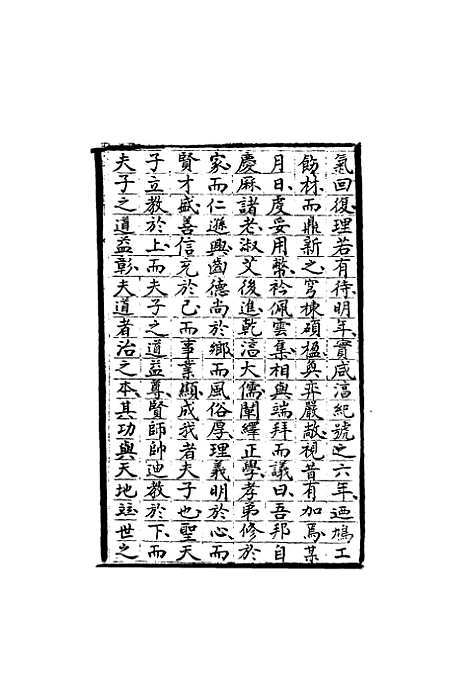 氣回復理若有待明年實咸淳紀號之六年迺鳩工
飭材而鼎新之穹棟碩楹奐弈嚴敞視昔有加焉某
月日虔妥用幣衿佩雲集相與端拜而議曰吾邦自
慶厤諸老淑艾後進乾淳大儒闡繹正學孝弟修於
家而仁遜興齒德尚於鄉而風俗厚理義明於心而
賢才盛善信充於己而事業顯成我者夫子也聖天
子立教於上而夫子之道益尊賢師帥迪教於下而
夫子之道益彰夫道者治之本其功與天地竝世之